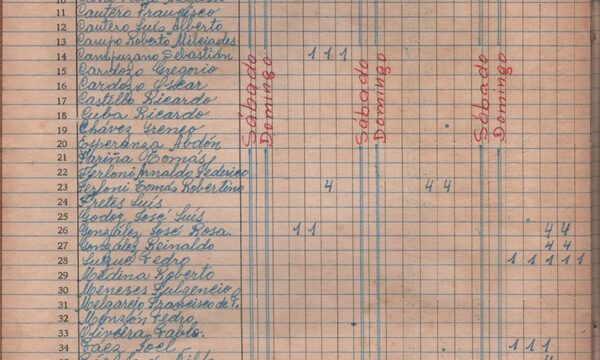 11 Cautero Francisco
12 Cautero Luís Alberto
13 Campo Roberto Milciades
14 Campuzano Sebastián 1 1 1
15 Cardozo Gregorio
16 Cardozo Oscar
17 Castillo Ricardo
18 Cuba Ricardo
19 Chávez
20 Esperanza Abdón
Sábado Domingo Sábado Domingo Sábado Domingo
21 Fariña Tomás
22 Ferloni Arnaldo Federico
23 Ferloni Tomás Robertino 4 4 4
24 Fretes Luís
25 Godoy José Luís
26 González José Rosa 1 1 4 4
27 González Reinaldo 4 4
28 Luque Pedro 1 1 1 1 1
29 Medina Roberto
30 Meneses Fulgencio
31 Melgarejo Francisco
32 Monzón Pedro
33 Oliveira Pablo
34 Páez Joel 1 1 1